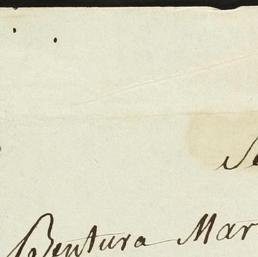 Bentura Mar